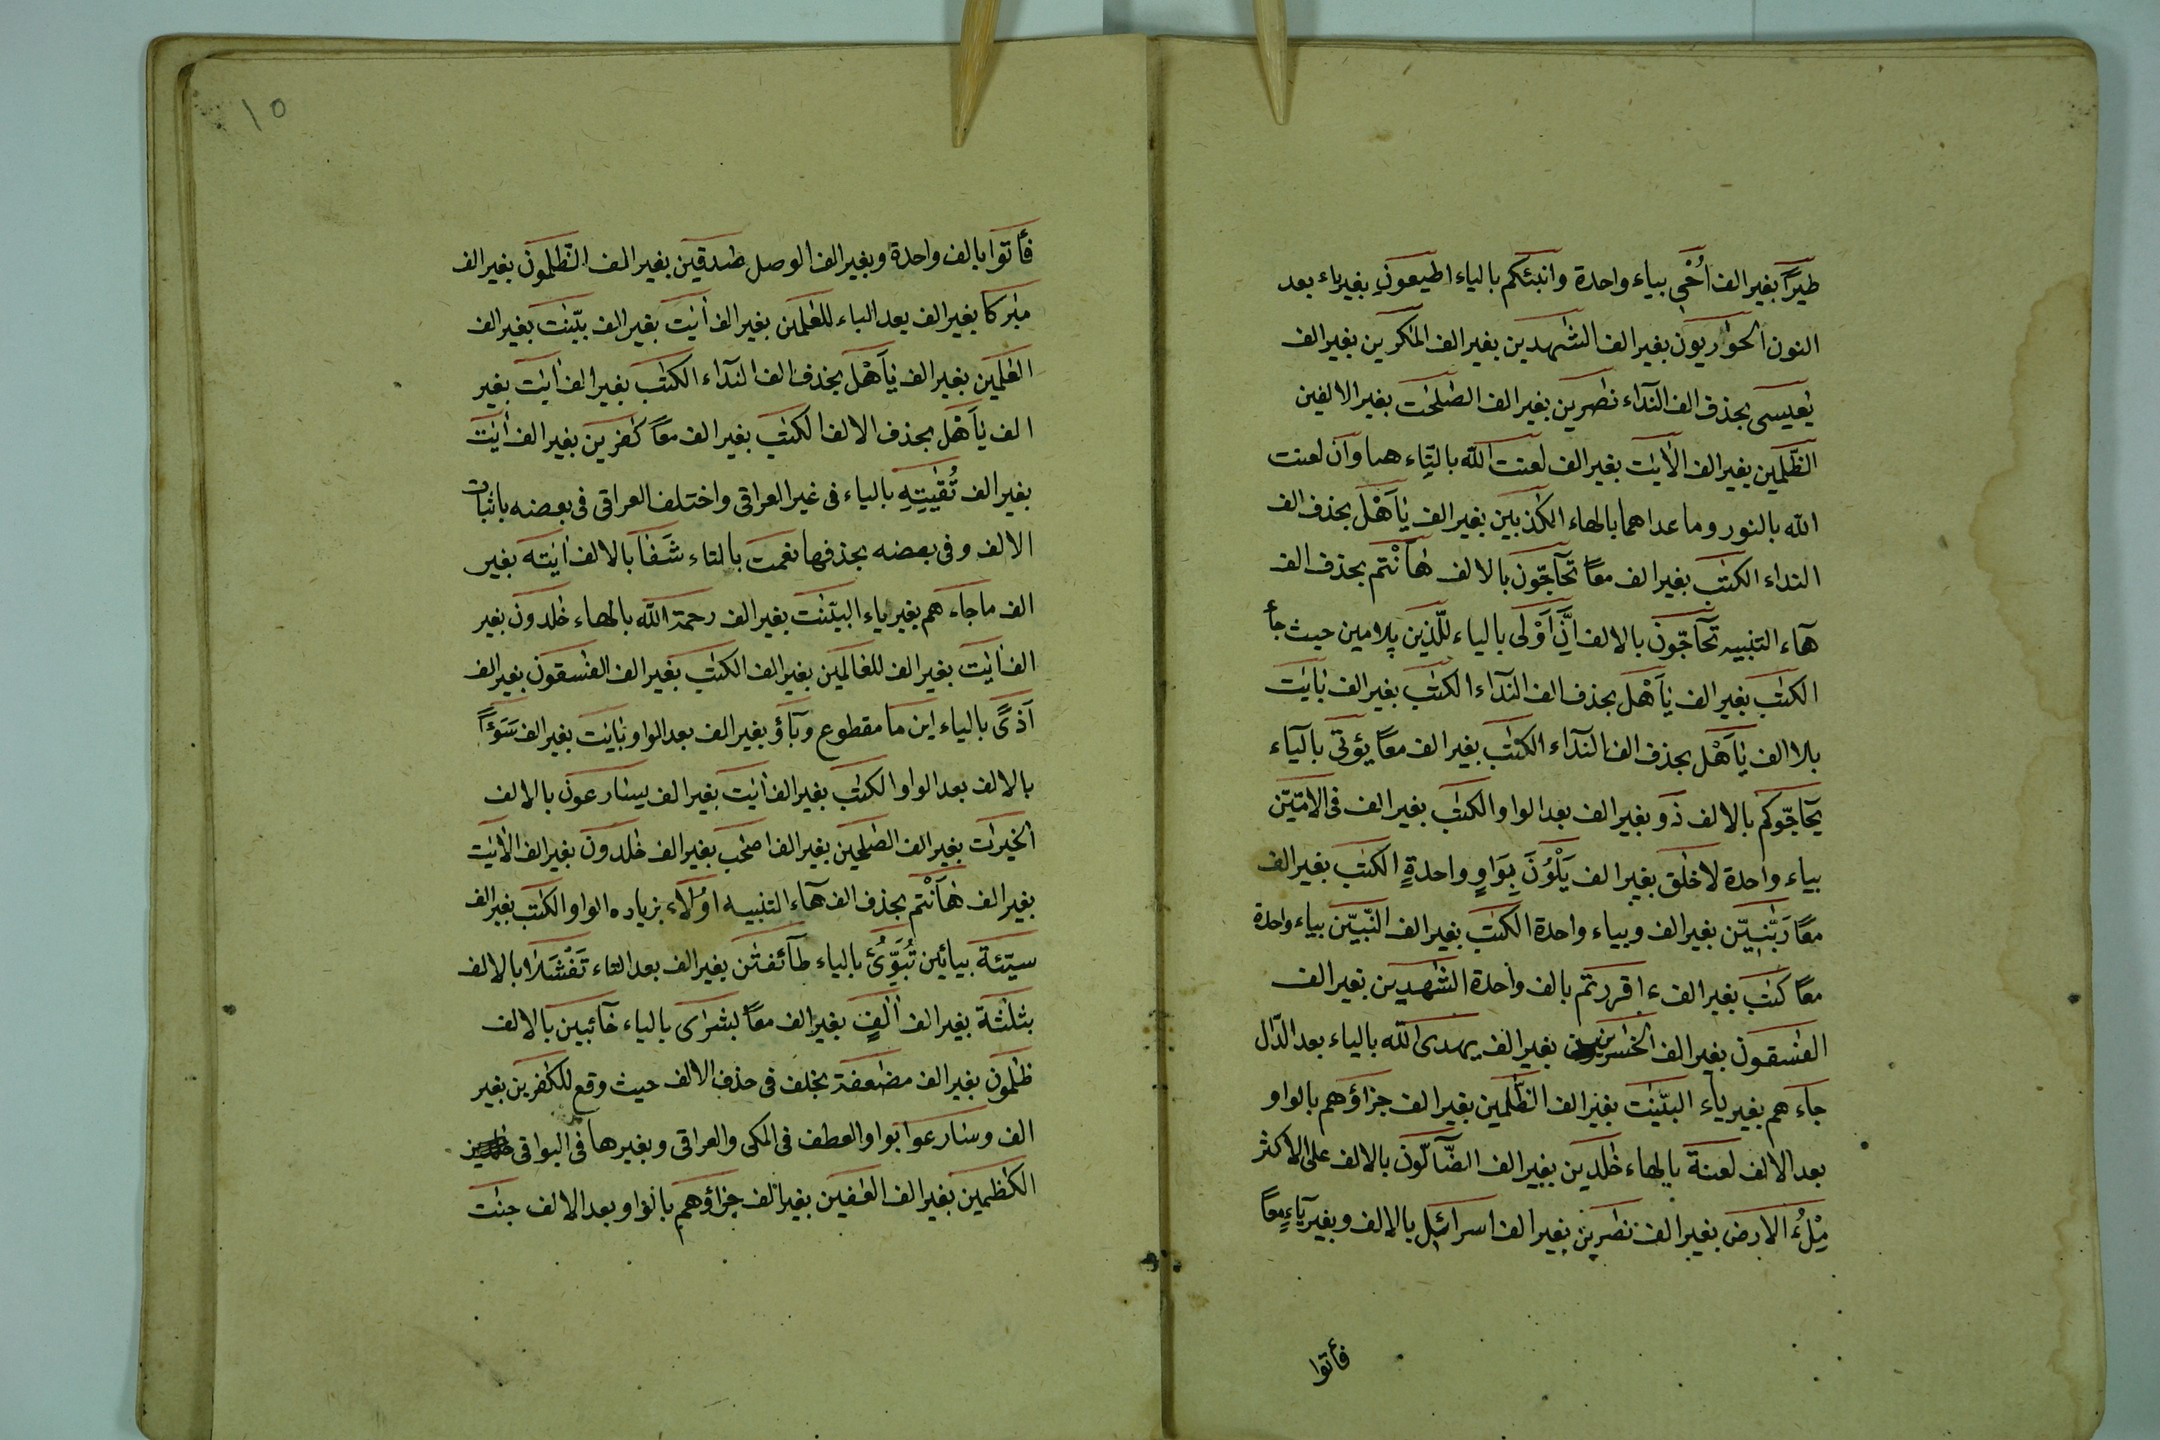 طيرًا بغير الف اُحْيِ بياء واحدة وانبئكم بالياء اطيعونِ بغير ياء بعد
النون الحوٰاريون بغير الف الشٰهدين بغير الف المٰكرين بغير الف
يٰعيسى بحذف الف النداء نٰصرين بغير الف الصّٰلحٰت بغير الالفين
الظّٰلمين بغير الف الاٰيٰت بغير الف لعنت الله بالتاء هنا وان لعنت
الله بالنور وما عداهما بالهاء الكٰذبين بغير الف يٰاَهْلَ بحذف الف
النداء الكتٰب بغير الف معًا تحآجّون بالالف هٰاَنْتم بحذف الف
هآء التنبيه تُحآجّون بالالف اِنَّ اَوْلَى بالياء للّذين بلامين حيث جاء
الكتٰب بغير الف يٰاَهْلَ بحذف الف النداء الكتٰب بغير الف بٰايٰت
بلا الف يٰاَهْلَ بحذف الف النداء الكتٰب بغير الف معًا يؤتى بالياء
يحآجّوكم بالالف ذو بغير الف بعد الواو الكتٰب بغير الف فى الامّيّن
بياء واحدة لا خلٰق بغير الف يَلْوُنَ بِوَاوٍ واحدةٍ الكتٰب بغير الف
معًا رَبّٰنيّن بغير الف وبياء واحدة الكتٰب بغير الف النّبيّن بياء واحدة
معًا كتٰب بغير الف ءاقررتم بالف واحدة الشّٰهدين بغير الف
الفٰسقون بغير الف الخٰسرين بغير الف يهدى الله بالياء بعد الدال
جاءهم بغير ياء البيّنٰت بغير الف الظّٰلمين بغير الف جزاؤهم بالواو
بعد الالف لعنة بالهاء خٰلدين بغير الف الضّآلّون بالالف على الاكثر
مِلْءُ الارض بغير الف نٰصرين بغير الف اسرائيل بالالف وبغير ياءٍ معًا
فأتوا
١٥
فأتوا بالف واحدة وبغير الف الوصل صٰدقين بغير الف الظّٰلمون بغير الف
مبٰركا بغير الف بعد الباء للعٰلمين بغير الف اٰيٰت بغير الف بيّنٰت بغير الف
العٰلمين بغير الف يٰاَهْلَ بحذف الف النداء الكتٰب بغير الف اٰيٰت بغير
الف يٰاَهْلَ بحذف الالف الكتٰب بغير الف معًا كٰفرين بغير الف اٰيٰت
بغير الف تُقٰيتِهِ بالياء فى غير العراقى واختلف العراقى فى بعضه باثبات
الالف وفى بعضه بحذفها نعمت بالتاء شَفَا بالالف اٰيٰته بغير
الف ما جاءهم بغير ياء البيّنٰت بغير الف رحمة الله بالهاء خٰلدون بغير
الف اٰيٰت بغير الف للعالمين بغير الف الكتٰب بغير الف الفٰسقون بغير الف
اَذًى بالياء اين ما مقطوع وبآؤ بغير الف بعد الواو بٰايٰت بغير الف سَوَءًا
بالالف بعد الواو الكتٰب بغير الف اٰيٰت بغير الف يسٰارعون بالالف
الخيرٰت بغير الف الصّٰلحين بغير الف اصحٰب بغير الف خٰلدون بغير الف الاٰيٰت
بغير الف هٰاَنْتم بحذف الف هآء التنبيه اوُلآء بزياده الواو الكتٰب بغير الف
سيّئة بيائين تُبَوِّئُ بالياء طآئفتٰن بغير الف بعد التاء تَفْشَلَا بالالف
بثلٰثة بغير الف اٰلٰفٍ بغير الف معًا بشرٰى بالياء خآئبين بالالف
ظٰلمون بغير الف مضٰعفة بخلف فى حذف الالف حيث وقع للكٰفرين بغير
الف وسٰارعوا بواو العطف فى المكى والعراقى وبغيرها فى البواقى
الكٰظمين بغير الف العٰفين بغير الف جزاؤهم بالواو بعد الالف جنٰت